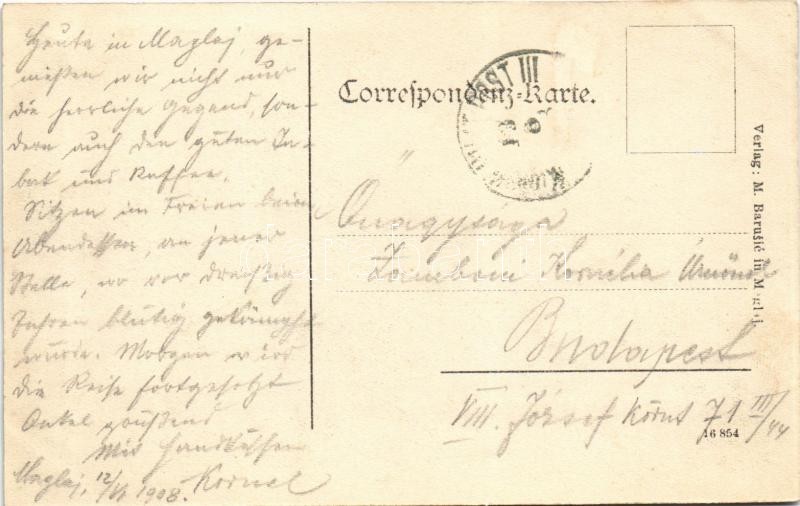 Heute in Maglaj, ge-
nießen wir nicht nur
die herrliche Gegend, son-
dern auch den guten Ta-
bak und Kaffee.
Sitzen im Freien beim
Abendessen, an jener
Stelle, wo vor dreißig
Jahren blutig gekämpft
wurde. Morgen wird
die Reise fortgesetzt
Onkel grüßend
Mit Handküssen
Kornel
Maglaj, 12/VI 1908.
Correspondenz-Karte.
POST III
Önagysaga
Zamboni Kornélia Úrnőnek
Budapest
VIII. József körut 71 III/44
16 854
Verlag: M. Barušić in Maglaj.